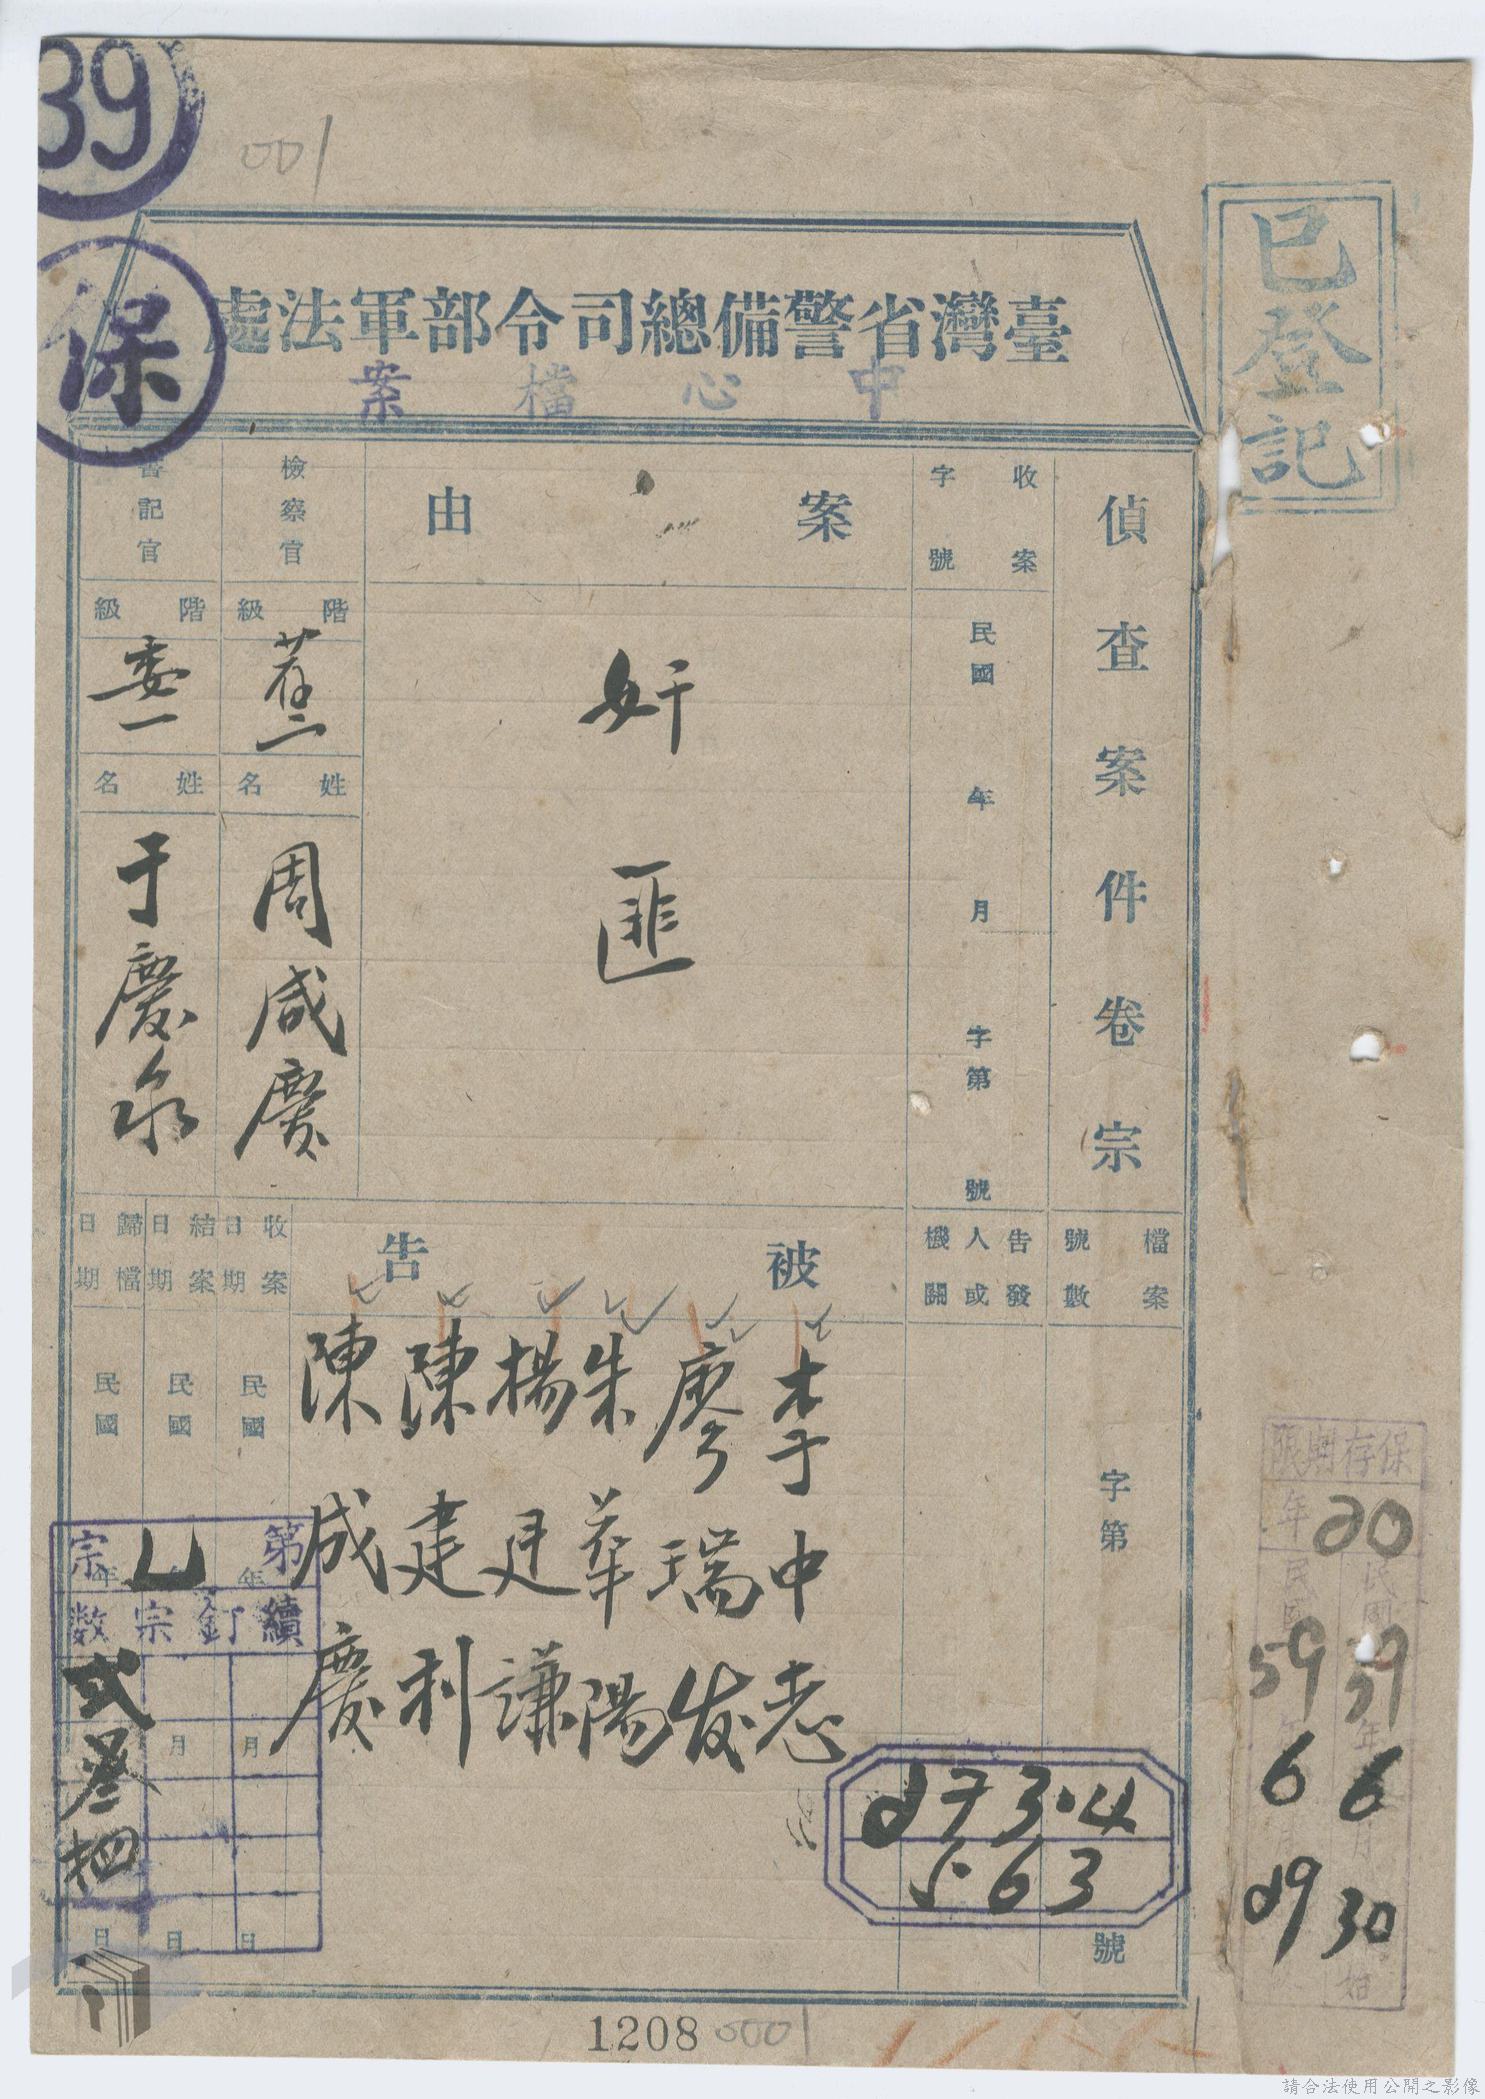 39
001
保
臺灣省警備總司令部軍法處
中心檔案
已登記
偵查案件卷宗
檔案號數
字第
號
273.4
563
收案字號
民國 年 月 字第 號
告發人或機關
案由
奸匪
被告
李中志
廖瑞发
朱華陽
楊廷謙
陳建利
陳成慶
檢察官
階級
荐二
姓名
周咸慶
書記官
階級
委一
姓名
于慶泉
收案日期
民國 年 月 日
結案日期
民國 年 月 日
歸檔日期
民國 年 月 日
第 宗
續訂宗数
弍
叁
肆
保存期限
20年
民國39年6月30 始
民國59年6月29
1208 0001
請合法使用公開之影像